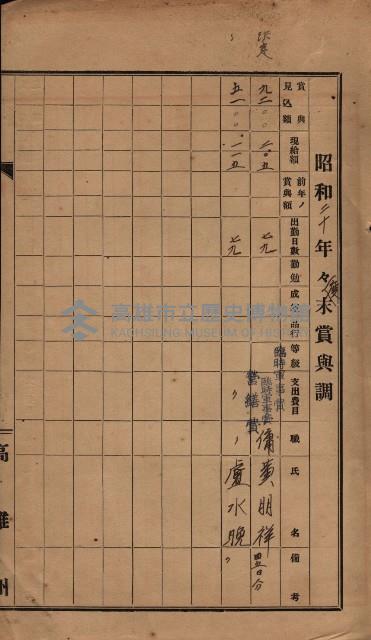 昭和二十年度年末賞與調
賞與見込額
現給額
前年ノ賞與額
出勤日數
勤勉
成績
品行
等級
支出費目
職
氏名
備考
決定
九二〇〇
二〇五
七九
臨時軍事費
傭
黃明祥
四五日分
五一〇〇
一一五
七九
營繕費
〃
盧水晚
〃
高雄州
高雄市立歷史博物館
KAOHSIUNG MUSEUM OF HISTORY